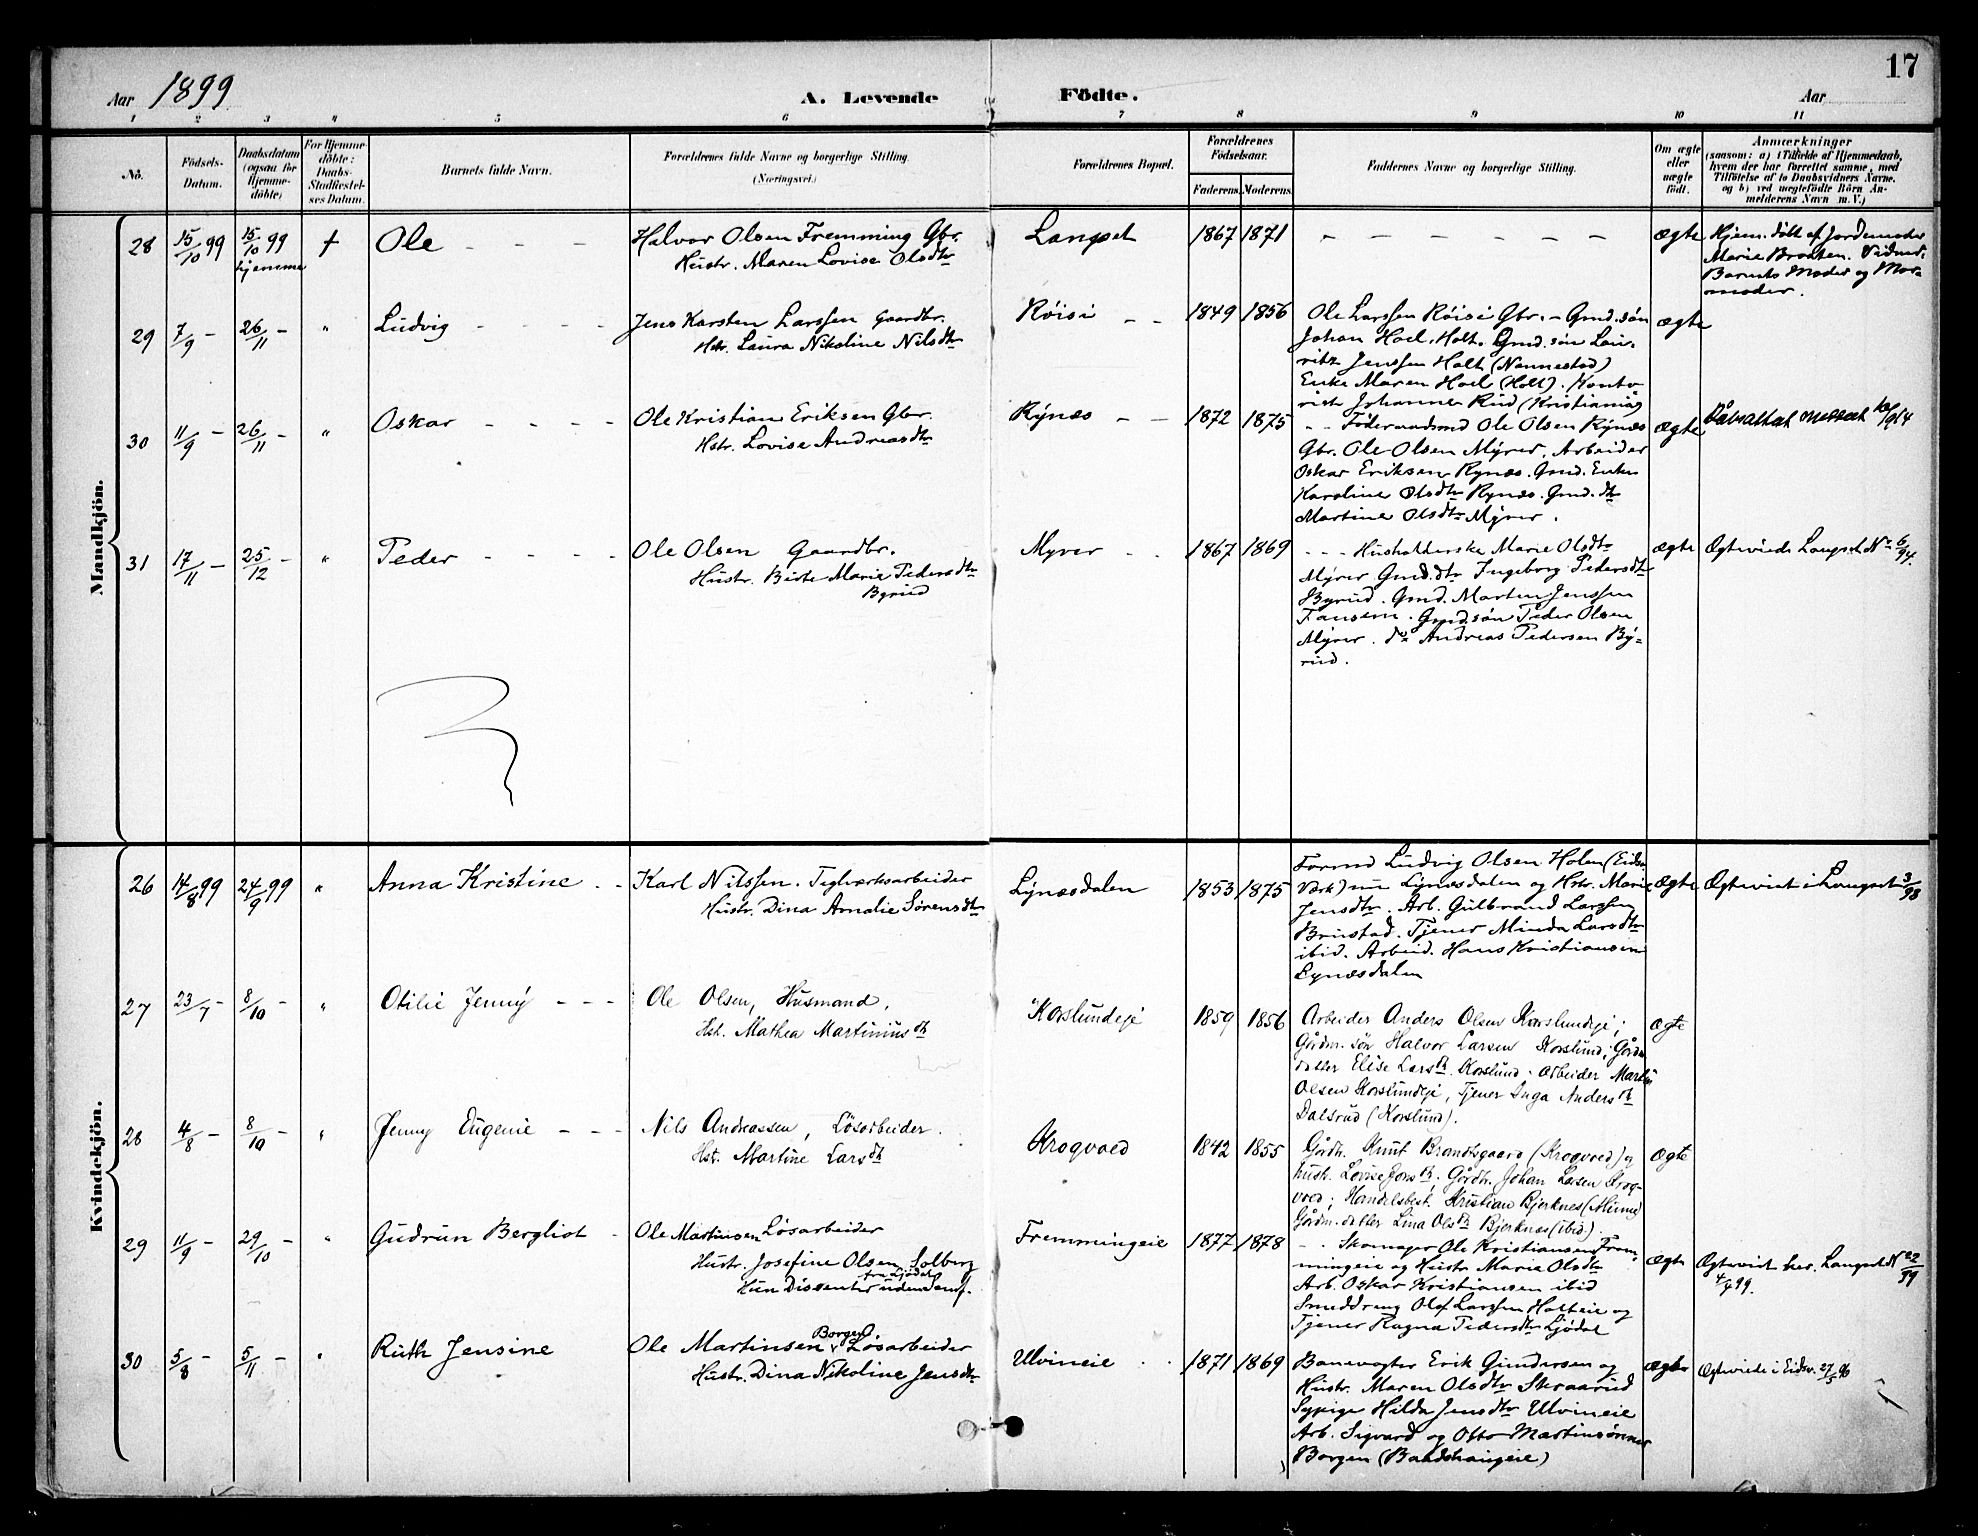 17
Aar 1899
A. Levende Födte.
Aar
1 2 3 4 5 6 7 8 9 10 11
No.
Födsels-Datum.
Daabsdatum (ogsaa for Hjemme-döbte)
For Hjemme-döbte: Daabs-Stadfæstel-ses Datum.
Barnets fulde Navn.
Forældrenes fulde Navne og borgerlige Stilling.
(Næringsvei.)
Forældrenes Bopæl.
Forældrenes Födselsaar.
Faderens. Moderens.
Faddernes Navne og borgerlige Stilling.
Om ægte eller uægte födt.
Anmærkninger
(saasom: a) i Tilfælde af Hjemmedaab,
hvem der har forrettet samme, med
Tilföielse af to Daabsvidners Navne,
og b) ved uægtefödte Börn An-
melderens Navn m. V.)
Mandkjön.
28 15/10 99 15/10 99 hjemme † Ole
Halvor Olsen Fremming Gbr.
Hustr. Maren Lovise Olsdtr
Langset 1867 1871 ægte
Hjem. döbt af Jordemoder
Marie Braaten. Vidner.
Barnets Moder og Mor-
moder.
29 7/9 – 26/11 – " Ludvig
Jens Karsten Larssen Gaardbr.
Hstr. Laura Nikoline Nilsdtr
Röisi 1849 1856
Ole Larssen Röisi Gbr. – Gmd. sön
Johan Hoel, Holt. Gmd. sön Lau-
ritz Jenssen Holt (Nannestad)
Enke Maren Hoel (Holt). Konto-
rist Johanne Rud (Kristiania)
ægte
30 11/9 – 26/11 – " Oskar
Ole Kristian Eriksen Gbr.
Hstr. Lovise Andreasdtr
Rynæs 1872 1875
Föderaadsmd Ole Olsen Rynæs
Gbr. Ole Olsen Myrer, Arbeider
Oskar Eriksen Rynæs. Gmd. Enke
Karoline Olsdtr Rynæs. Gmd. dtr
Martine Olsdtr Myrer.
ægte
31 17/11 – 25/12 – " Peder
Ole Olsen Gaardbr.
Hustr. Birte Marie Pedersdtr
Byrud
Myrer 1867 1869
Husholderske Marie Olsdtr
Myrer Gmd. dtr Ingeborg Pedersdtr
Byrud. Gmd. Marten Jenssen
Gmd. sön Peder Olsen
Myrer. do Andreas Pedersen By-
rud.
ægte Ægteviede Langset No 6/94.
Kvindekjön.
26 14/8 99 24/9 99 " Anna Kristine
Karl Nilssen. Teglværksarbeider
Hustr. Dina Amalie Sörensdtr
Lynæsdalen 1853 1875
Formd Ludvig Olsen Holm (Eidsv.
Værk) nu Lynæsdalen og Hstr. Marie
Jensdtr. Arb. Gulbrand Larssen
Brustad. Tjener Minda Larsdtr
ibid. Arbeid. Hans Kristiansen
Lynæsdalen
ægte Ægteviet i Langset 3/98
27 23/7 – 8/10 – " Otilie Jenny
Ole Olsen, Husmand,
Hst. Mathea Martiniusdtr
Korslundeje 1859 1856
Arbeider Anders Olsen Korslundeje;
Gårdm. sön Halvor Larsen Korslund; Gårdm.
datter Elise Larsdtr. Korslund. Arbeider Martin
Olsen Korslundeje, Tjener Inga Andersdtr
Dalsrud (Korslund).
ægte
28 4/8 – 8/10 – " Jenny Eugenie
Nils Andreassen, Lösarbeider.
Hst. Martine Larsdtr
Krogvoed 1842 1855
Gårdbr. Knut Brandsgaard (Krogvoed) og
hustr. Lovise Jonsdtr; Gårdbr. Johan Larsen Krog-
voed; Handelsbest. Kristian Bjerknes (Minne)
Gårdm. datter Lina Olsdtr Bjerknes (ibid).
ægte
29 11/9 – 29/10 – " Gudrun Bergliot
Ole Martinsen Lösarbeider
Hustr. Josefine Olsen Solberg
fra Ljödal
Hun Dissenter udmeldt
Fremmingeie 1877 1878
Skomager Ole Kristiansen Frem-
mingeie og Hustr Marie Olsdtr
Arb. Oskar Kristiansen ibid
Smeddreng Olof Larssen Holteie og
Tjener Ragna Pedersdtr Ljödal
ægte Ægteviet her. Langset No 22/99
30 5/8 – 5/11 – " Ruth Jensine
Ole Martinsen Borgen. Lösarbeider
Hustr. Dina Nikoline Jensdtr
Ulvineie 1871 1869
Banevogter Erik Gundersen og
Hustr. Maren Olsdtr Skraarud
Sypige Hilda Jensdtr Ulvineie
Arb. Sigvard og Otto Martinsönner
Borgen
ægte Ægteviede i Eidsv. 27/5 96